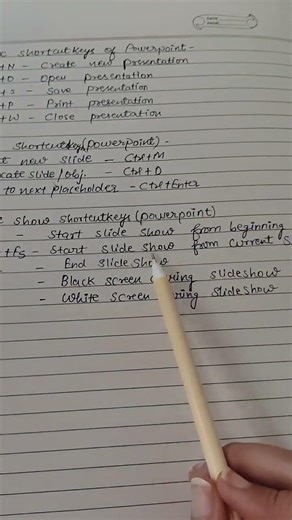 c shortcutkeys of Powerpoint-
+N - Create new presentation
+O - Open presentation
+S - Save presentation
+P - Print presentation
+W - Close presentation
Shortcutkey(powerpoint)-
t new slide - Ctrl+M
cate slide/obj. - Ctrl+D
to next placeholder - Ctrl+Enter
e show shortcutkeys (powerpoint)
- Start slide show from beginning
+F5 - Start slide show from current S
- End slide show
- Black screen during slideshow
- White screen during slideshow